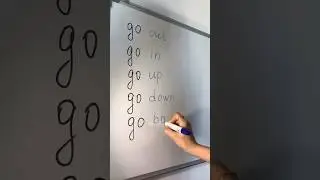 go out
go in
go up
go down
go ba